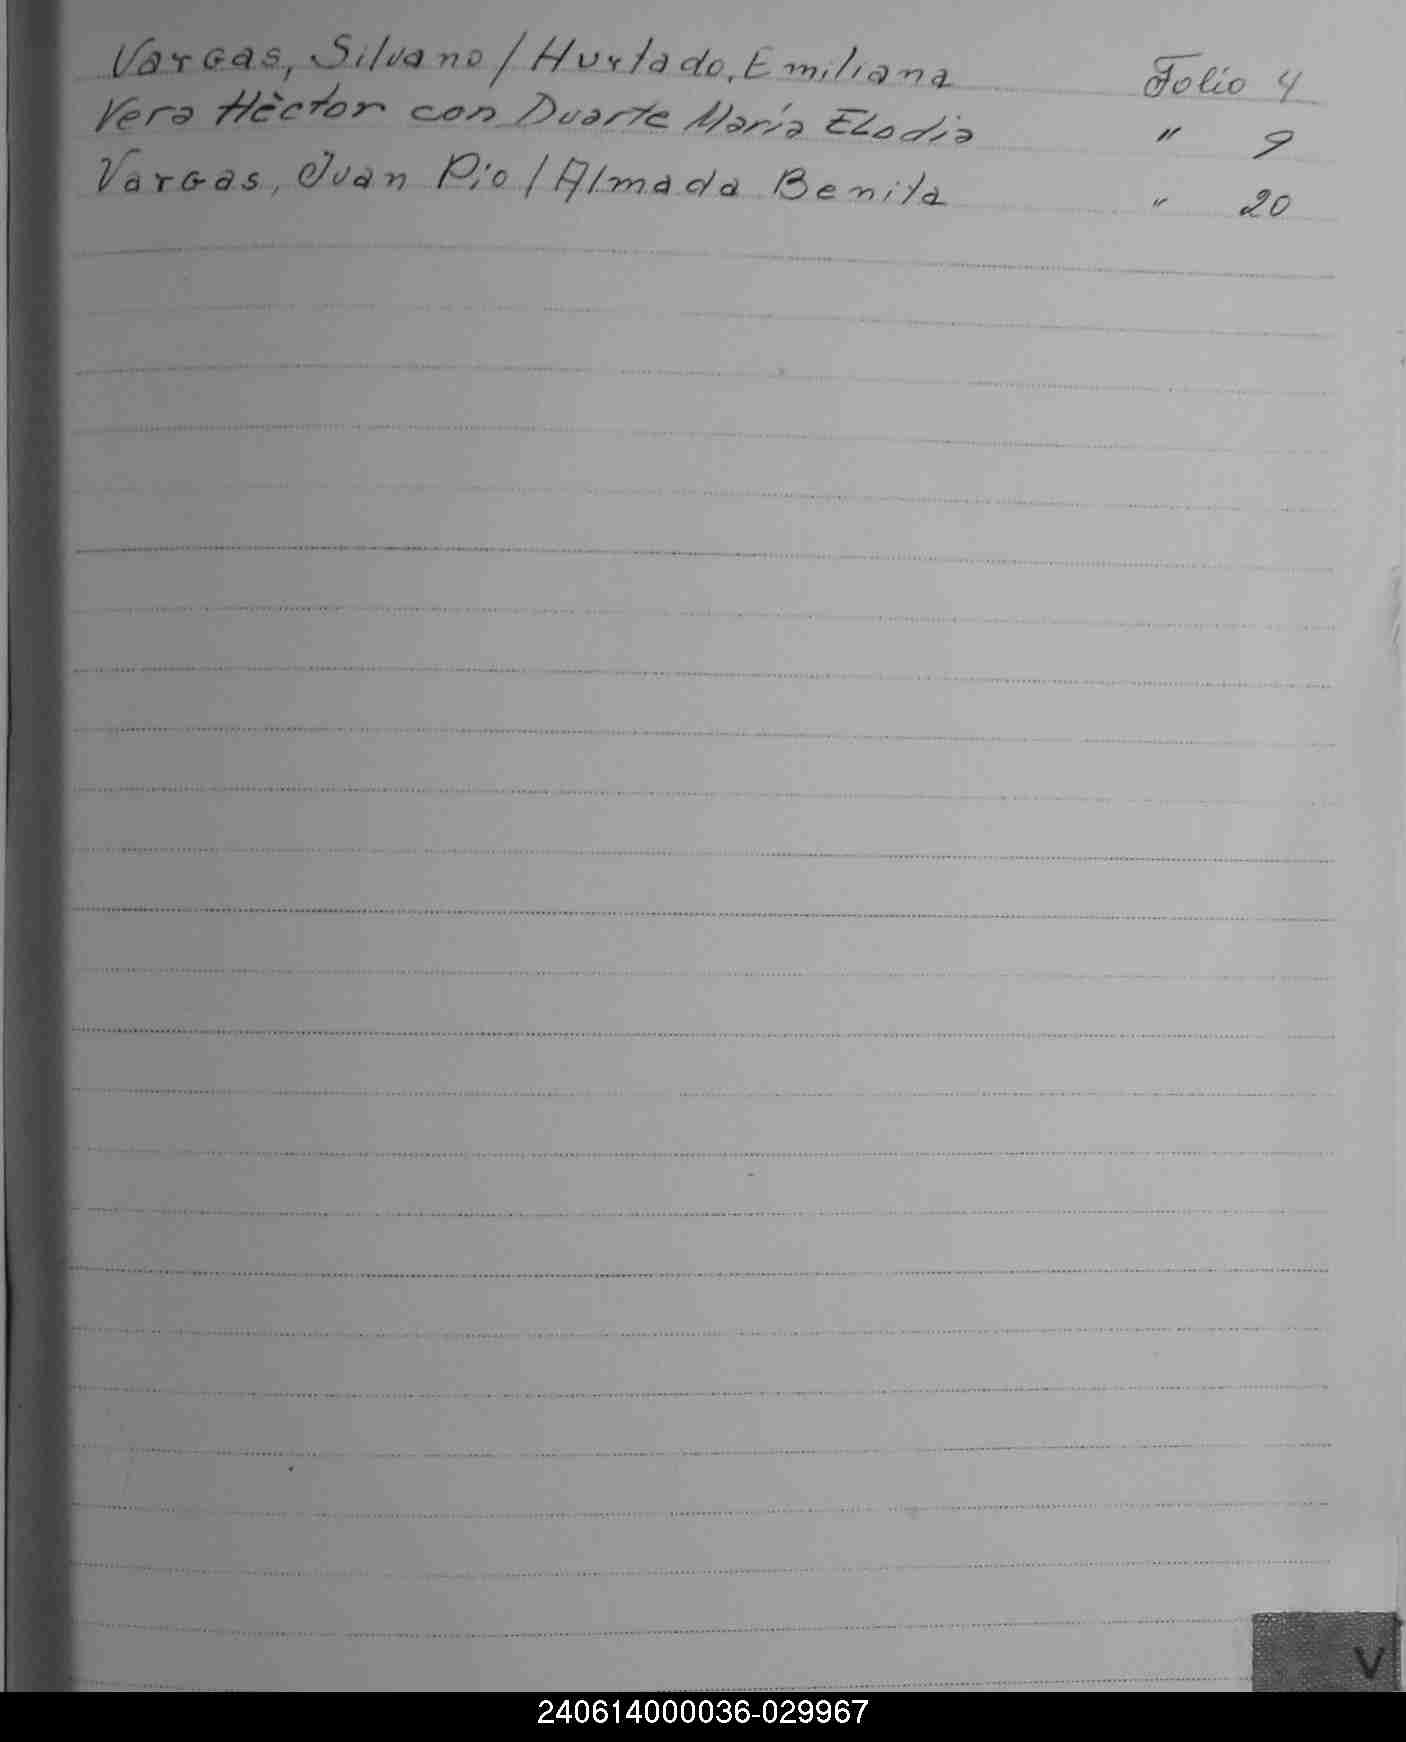 Vargas, Silvano / Hurtado, Emiliana Folio 4
Vera Hèctor con Duarte María Elodia " 9
Vargas, Juan Pio / Almada Benita " 20
V
240614000036-029967